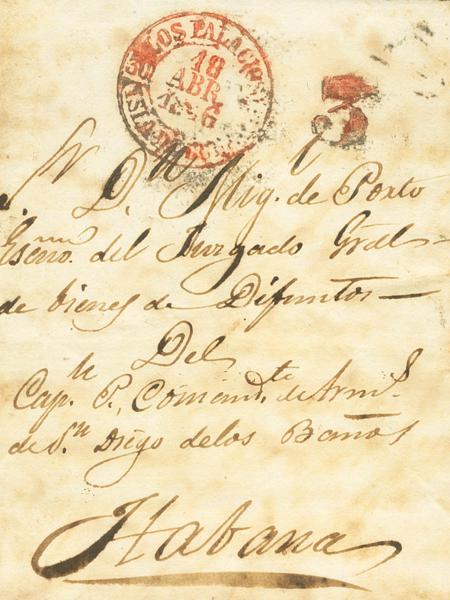 LOS PALACIOS
18
ABR
3
S.r D.n Mig.l de Porto
Escno. del Juzgado Gral
de bienes de Difuntos —
Del
Cap.n P., Comand.te de Arm.s
de S.n Diego de los Baños
Habana